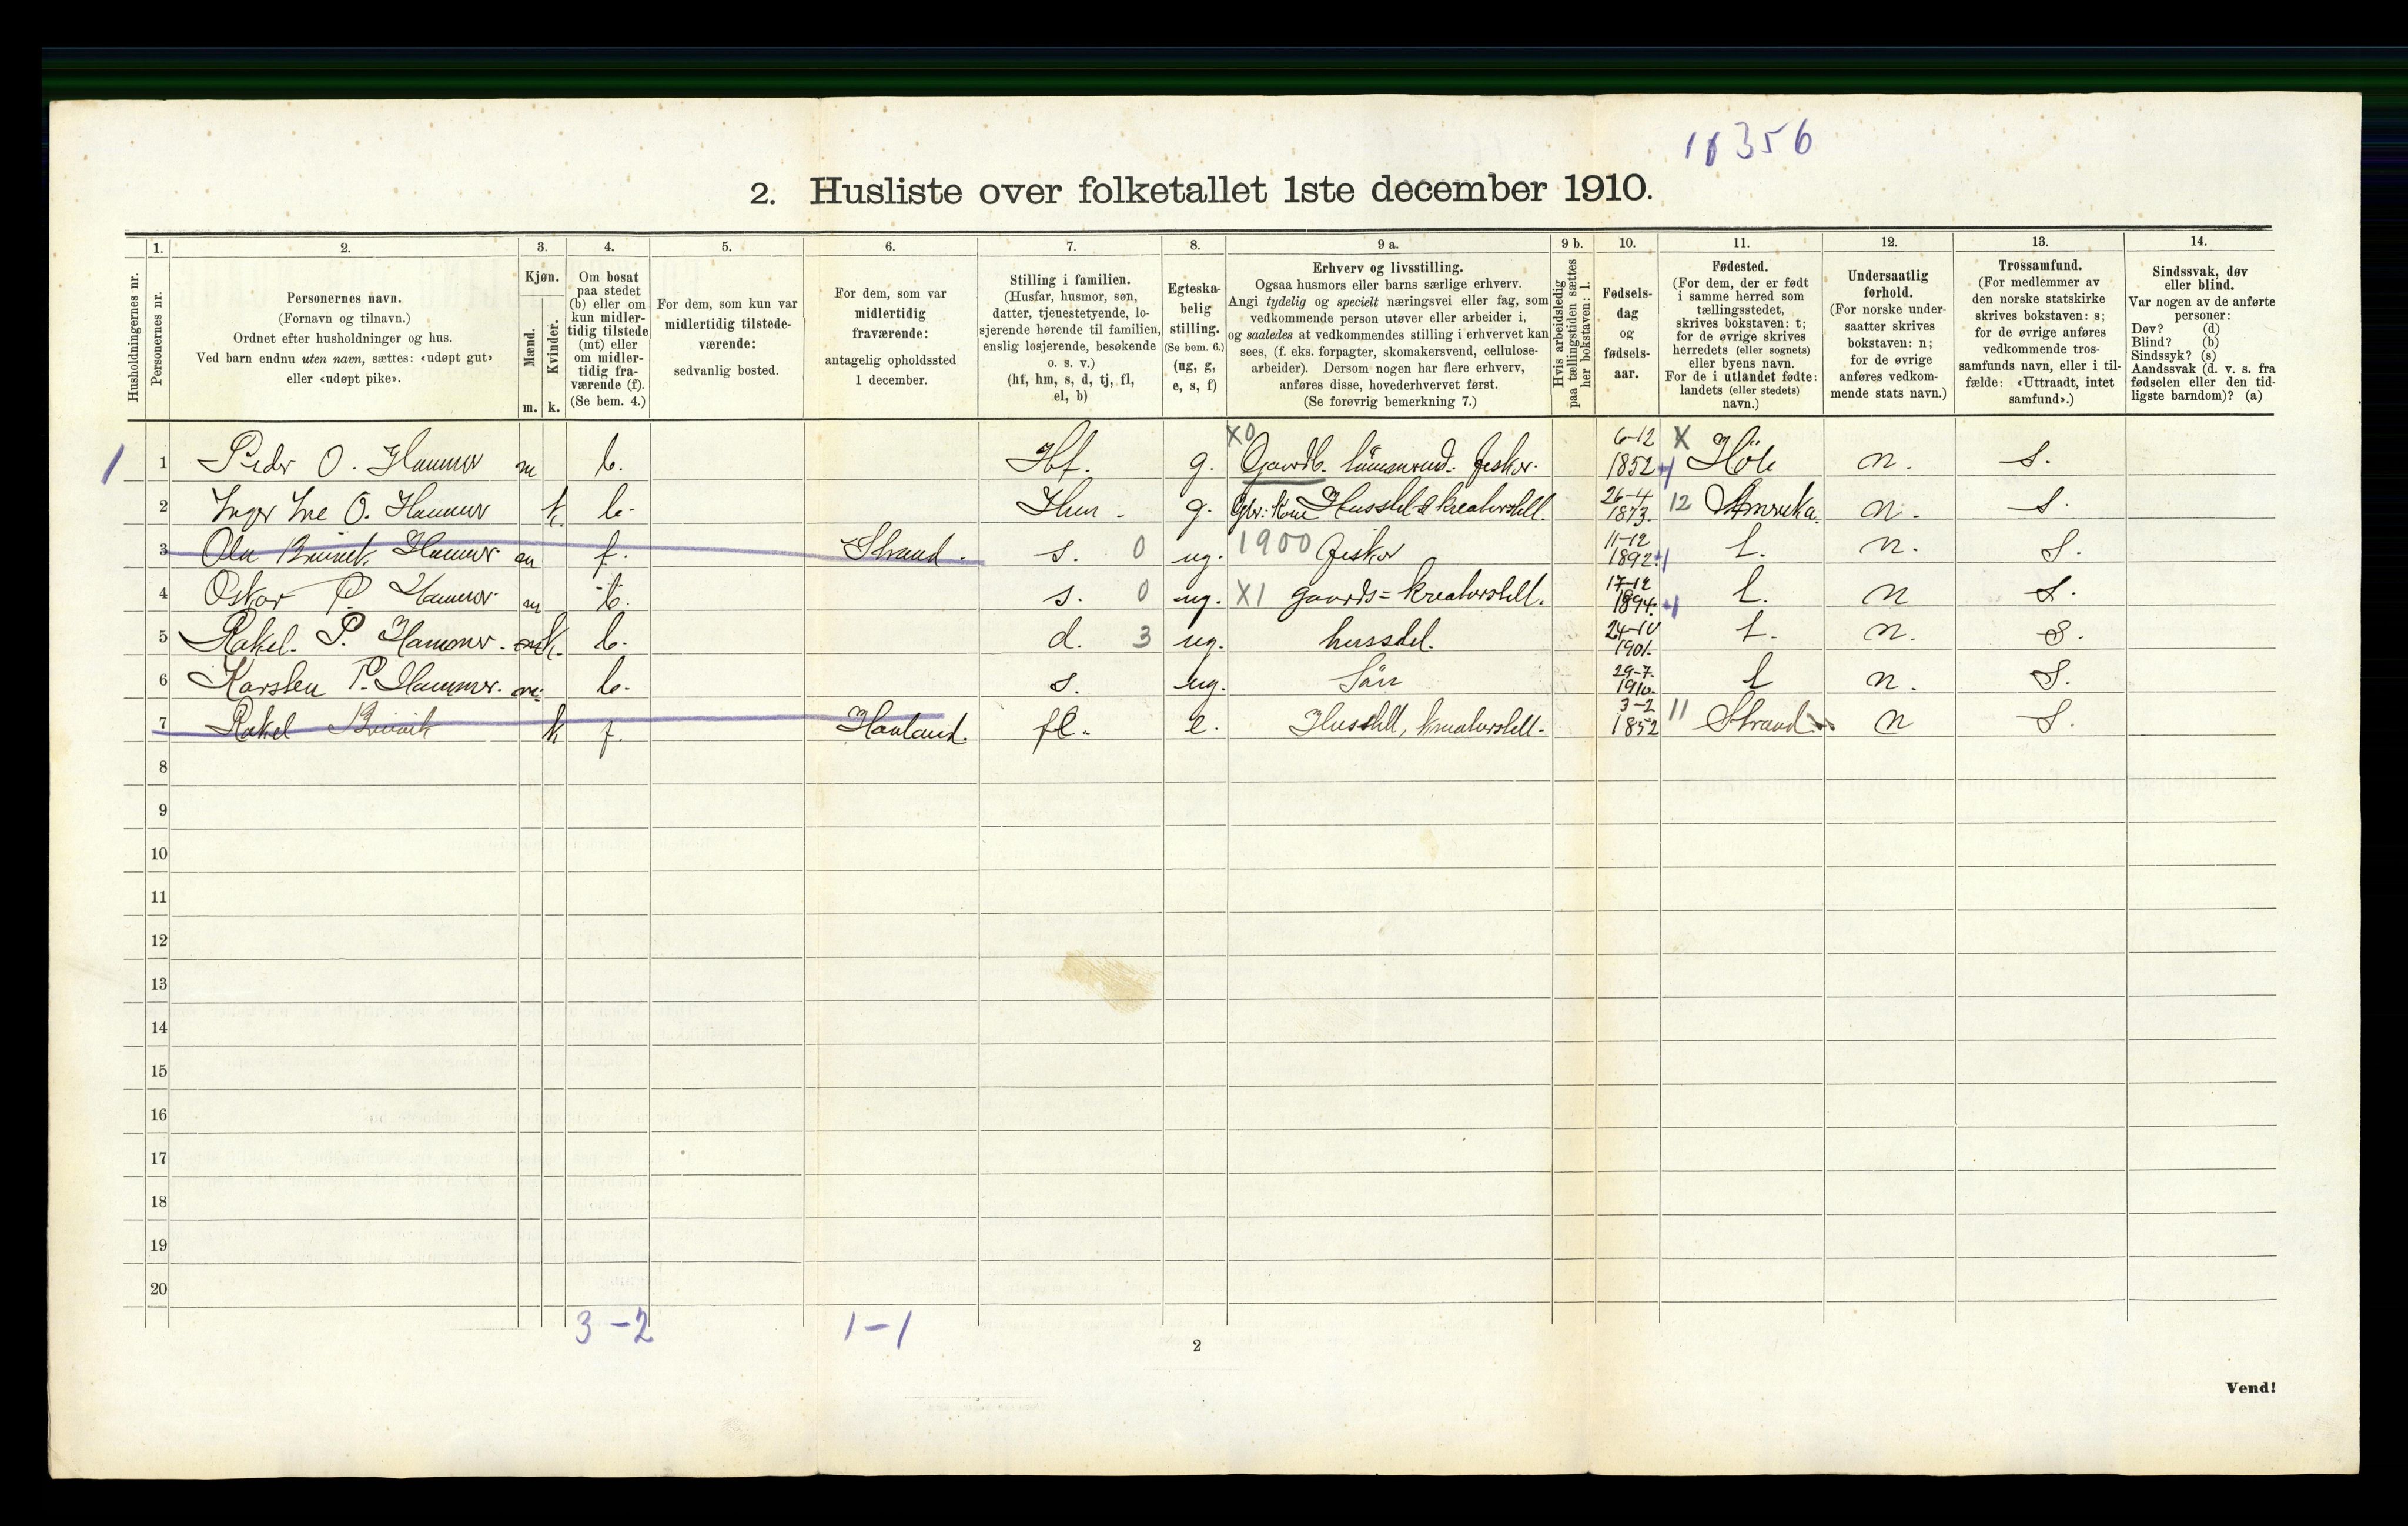 11356
2. Husliste over folketallet 1ste december 1910.
Husholdningernes nr.
1.
Personernes nr.
2.
Personernes navn.
(Fornavn og tilnavn.)
Ordnet efter husholdninger og hus.
Ved barn endnu uten navn, sættes: «udøpt gut»
eller «udøpt pike».
3.
Kjøn.
Mænd.
Kvinder.
m. k.
4.
Om bosat
paa stedet
(b) eller om
kun midler-
tidig tilstede
(mt) eller
om midler-
tidig fra-
værende (f).
(Se bem. 4.)
5.
For dem, som kun var
midlertidig tilstede-
værende:
sedvanlig bosted.
6.
For dem, som var
midlertidig
fraværende:
antagelig opholdssted
1 december.
7.
Stilling i familien.
(Husfar, husmor, søn,
datter, tjenestetyende, lo-
sjerende hørende til familien,
enslig losjerende, besøkende
o. s. v.)
(hf, hm, s, d, tj, fl,
el, b)
8.
Egteska-
belig
stilling.
(Se bem. 6.)
(ug, g,
e, s, f)
9 a.
Erhverv og livsstilling.
Ogsaa husmors eller barns særlige erhverv.
Angi tydelig og specielt næringsvei eller fag, som
vedkommende person utøver eller arbeider i,
og saaledes at vedkommendes stilling i erhvervet kan
sees, (f. eks. forpagter, skomakersvend, cellulose-
arbeider). Dersom nogen har flere erhverv,
anføres disse, hovederhvervet først.
(Se forøvrig bemerkning 7.)
9 b.
Hvis arbeidsledig
paa tællingstiden sættes
her bokstaven: l.
10.
Fødsels-
dag
og
fødsels-
aar.
11.
Fødested.
(For dem, der er født
i samme herred som
tællingsstedet,
skrives bokstaven: t;
for de øvrige skrives
herredets (eller sognets)
eller byens navn.
For de i utlandet fødte:
landets (eller stedets)
navn.)
12.
Undersaatlig
forhold.
(For norske under-
saatter skrives
bokstaven: n;
for de øvrige
anføres vedkom-
mende stats navn.)
13.
Trossamfund.
(For medlemmer av
den norske statskirke
skrives bokstaven: s;
for de øvrige anføres
vedkommende tros-
samfunds navn, eller i til-
fælde: «Uttraadt, intet
samfund».)
14.
Sindssvak, døv
eller blind.
Var nogen av de anførte
personer:
Døv? (d)
Blind? (b)
Sindssyk? (s)
Aandssvak (d. v. s. fra
fødselen eller den tid-
ligste barndom)? (a)
1 1 Peder O. Hammer m b. Hf. g. X0 Gaardb. fisker. 6-12 1852 X Höle n. s.
2 Inger O. Hammer k. b. Hm. g. Gbr: Kone Husstel & kreaturstell. 26-4 1873. 12 Amerika. n. s.
3 Hammer m f. Strand. s. 0 ug. 1900 fisker 11-12 1892 t. n. s.
4 Oskar P. Hammer m b. s. 0 ug. X1 gaards= kreaturstell. 17-12 1894. t. n s.
5 Rakel. P. Hammer. k. b. d. 3 ug. husstel. 24-10 1901. t. n. s.
6 Karsten P. Hammer. m. b. s. ug. Sön 29-7. 1910. t n. s.
7 Rakel k f. fl. e. Husstell, kreaturstell. 3-2 1852 11 Strand n s.
8
9
10
11
12
13
14
15
16
17
18
19
20
3-2 1-1
2
Vend!